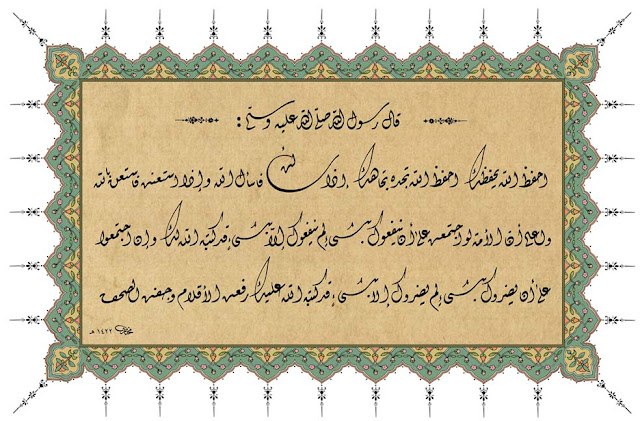 قال رسول الله صلى الله عليه وسلم :
احفظ الله يحفظك احفظ الله تجده تجاهك إذا سألت فاسأل الله وإذا استعنت فاستعن بالله
واعلم أن الأمة لو اجتمعت على أن ينفعوك بشيء لم ينفعوك إلا بشيء قد كتبه الله لك وإن اجتمعوا
على أن يضروك بشيء لم يضروك إلا بشيء قد كتبه الله عليك رفعت الأقلام وجفت الصحف
١٤٢٢ هـ